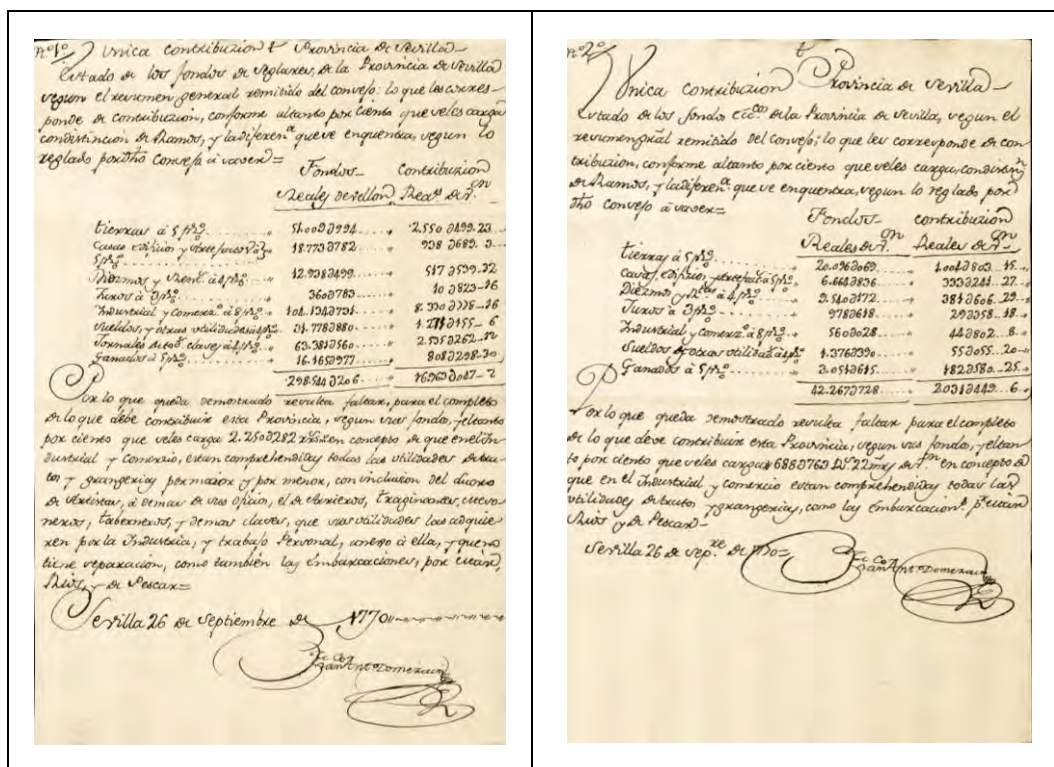 Nº 1º Unica contribuzion t Provincia de Sevilla
Estado de los fondos de Seglares, de la Provincia de Sevilla
segun el resumen general remitido del Consejo: lo que les corres-
ponde de contribuzion, conforme al tanto por ciento que se les carga
con distincion de Ramos, y la diferenª que se enquentra, segun lo
reglado por dho Consejo à saver=
Fondos Contribuzion
Reales de vellon Reaˢ de Vᵒⁿ
tierras à 5 p%
Casas edificios y 5 p% 18.773∂782 938∂689. 3
Diezmos y Rentˢ à 4 p% 12.938∂499 517∂539.32
Juros à 3 p% 360∂783 10∂823-16
Industrial y comerzº à 8 p% 104.134∂731 8.330∂778-16
Sueldos, y otras utilidades à 4 p% 31.778∂880 1.271∂155-6
Jornales de toᵈˢ clases à 4 p% 63.381∂560 2.535∂262-12
Ganados à 5 p% 16.165∂977 808∂298.30
298.544∂206 16.963∂047-2
Por lo que queda demostrado resulta faltar, para el completo
de lo que debe contribuir esta Provincia, segun sus fondos, y el tanto
por ciento que se les carga 2.250∂282 en concepto de que en el in
dustrial y comercio, estan comprehendidas todas las utilidades de tra-
tos, y grangerias por mayor y por menor, con inclusion del duoro
de Artistas, à demas de sus oficios, el de Arrieros, traginantes,
neros, taberneros, y demas clases, que sus utilidades las adquie-
ren por la Industria, y trabajo Personal, anexo à ella, y que no
tiene separacion, como también las Embarcaciones, por
Rios, y de Pescar=
Sevilla 26 de Septiembre de 1770
Juan Antº Domezain
Nº 2º t
Unica contribuzion Provincia de Sevilla
Estado de los fondos Eccᶜᵒˢ de la Provincia de Sevilla, segun el
resumen gral remitido del Consejo; lo que les corresponde de con
tribuzion, conforme al tanto por ciento que se les carga, con distinⁿ
de Ramos, y la diferenª que se enquentra, segun lo reglado por
dho consejo à saver=
Fondos contribuzion
Reales de Vᵒⁿ Reales de Vᵒⁿ
tierras à 5 p% 20.096∂069 1.004∂803 15
casas, edificios, y à 5 p% 6.664∂836 333∂241 27
Diezmos y à 4 p% 9.540∂172 381∂606 29
Juros à 3 p% 978∂618 29∂358 18
Industrial y comerzº à 8 p% 560∂028 44∂802 8
Sueldos y otras utilidˢ à 4 p% 1.376∂390 55∂055 20
Ganados à 5 p% 3.051∂615 182∂580 25
42.267∂728 2031∂449 6
Por lo que queda demostrado resulta faltar para el completo
de lo que deve contribuir esta Provincia, segun sus fondos, y el tan
to por ciento que se les carga 688∂769 Rˢ 22 mrs de Vᵒⁿ en concepto de
que en el Industrial y comercio estan comprehendidas todas las
utilidades de tratos y grangerias, como las embarcacionˢ
Rios y de Pescar
Sevilla 26 de Sepᵗʳᵉ de 1770=
Juan Antº Domezain